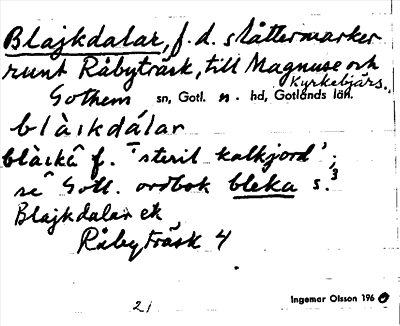 Blajkdalar, f. d. slåttermarker
runt Råbyträsk, till Magnuse och
Kyrkebjärs.
Gothem sn, Gotl. n. hd, Gotlands län.
blàıkdálar
blàıkâ f. "steril kalkjord";
se Gotl. ordbok bleka s.³
Blajkdalar ek
Råby träsk 4
21
Ingemar Olsson 1960